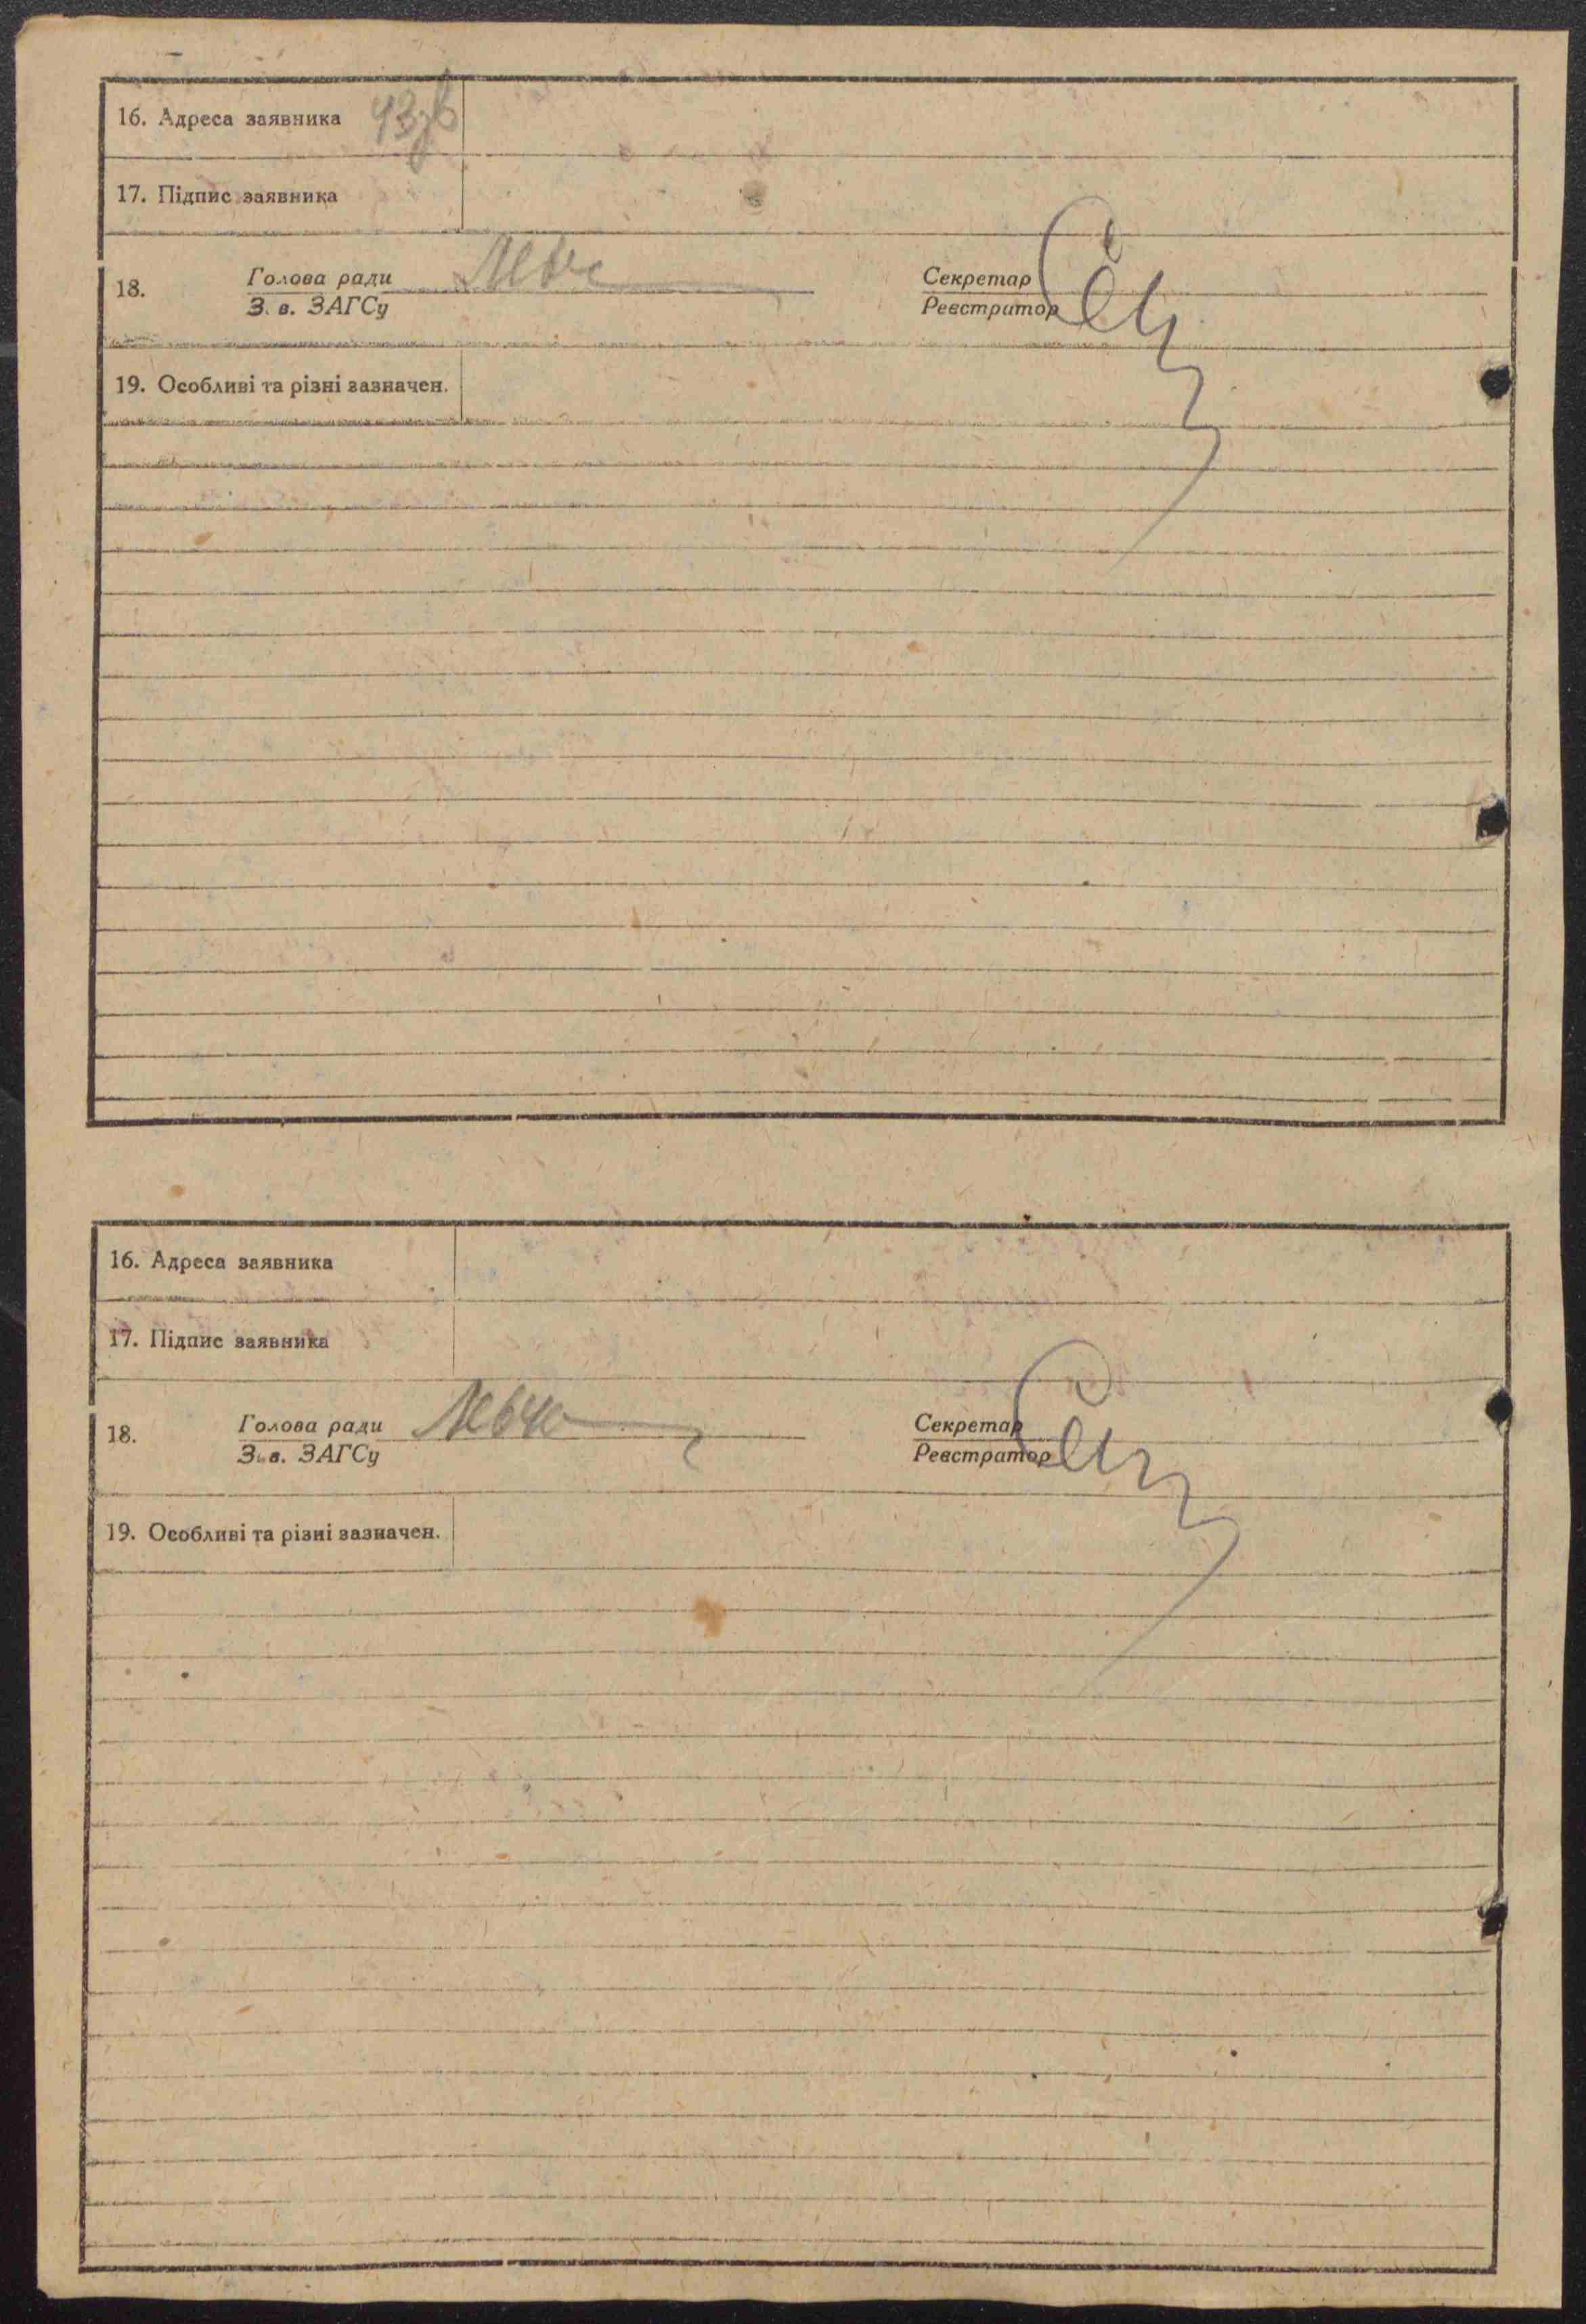 16. Адреса заявника 43зв
17. Підпис заявника
18. Голова ради Секретар
З. в. ЗАГСу Реєстратор
19. Особливі та різні зазначен.
16. Адреса заявника
17. Підпис заявника
18. Голова ради Секретар
З. в. ЗАГСу Реєстратор
19. Особливі та різні зазначен.